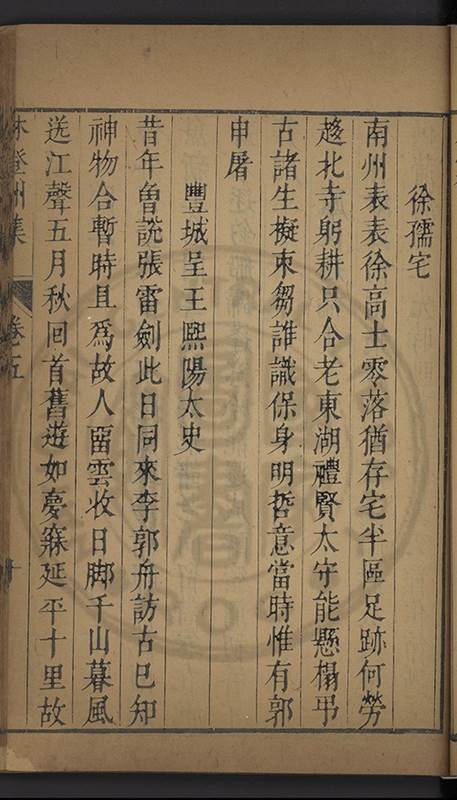 徐孺宅
南州表表徐高士零落猶存宅半區足跡何勞
趍北寺躬耕只合老東湖禮賢太守能懸榻弔
古諸生擬束芻誰識保身明哲意當時惟有郭
申屠
豐城呈王熙陽太史
昔年曾說張雷劍此日同來李郭舟訪古已知
神物合暫時且爲故人留雲收日脚千山暮風
送江聲五月秋回首舊遊如夢寐延平十里故
林登州集
卷五